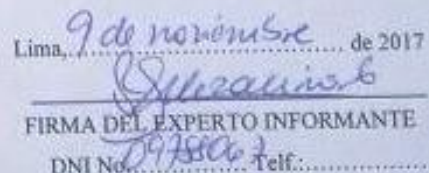 Lima, 9 de noviembre de 2017
FIRMA DEL EXPERTO INFORMANTE
DNI No. Telf.: